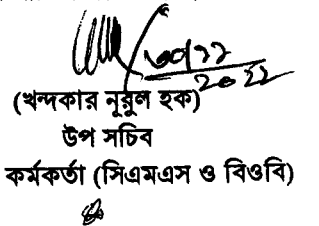 ২০২২
(খন্দকার নূরুল হক)
উপ সচিব
কর্মকর্তা (সিএমএস ও বিওবি)